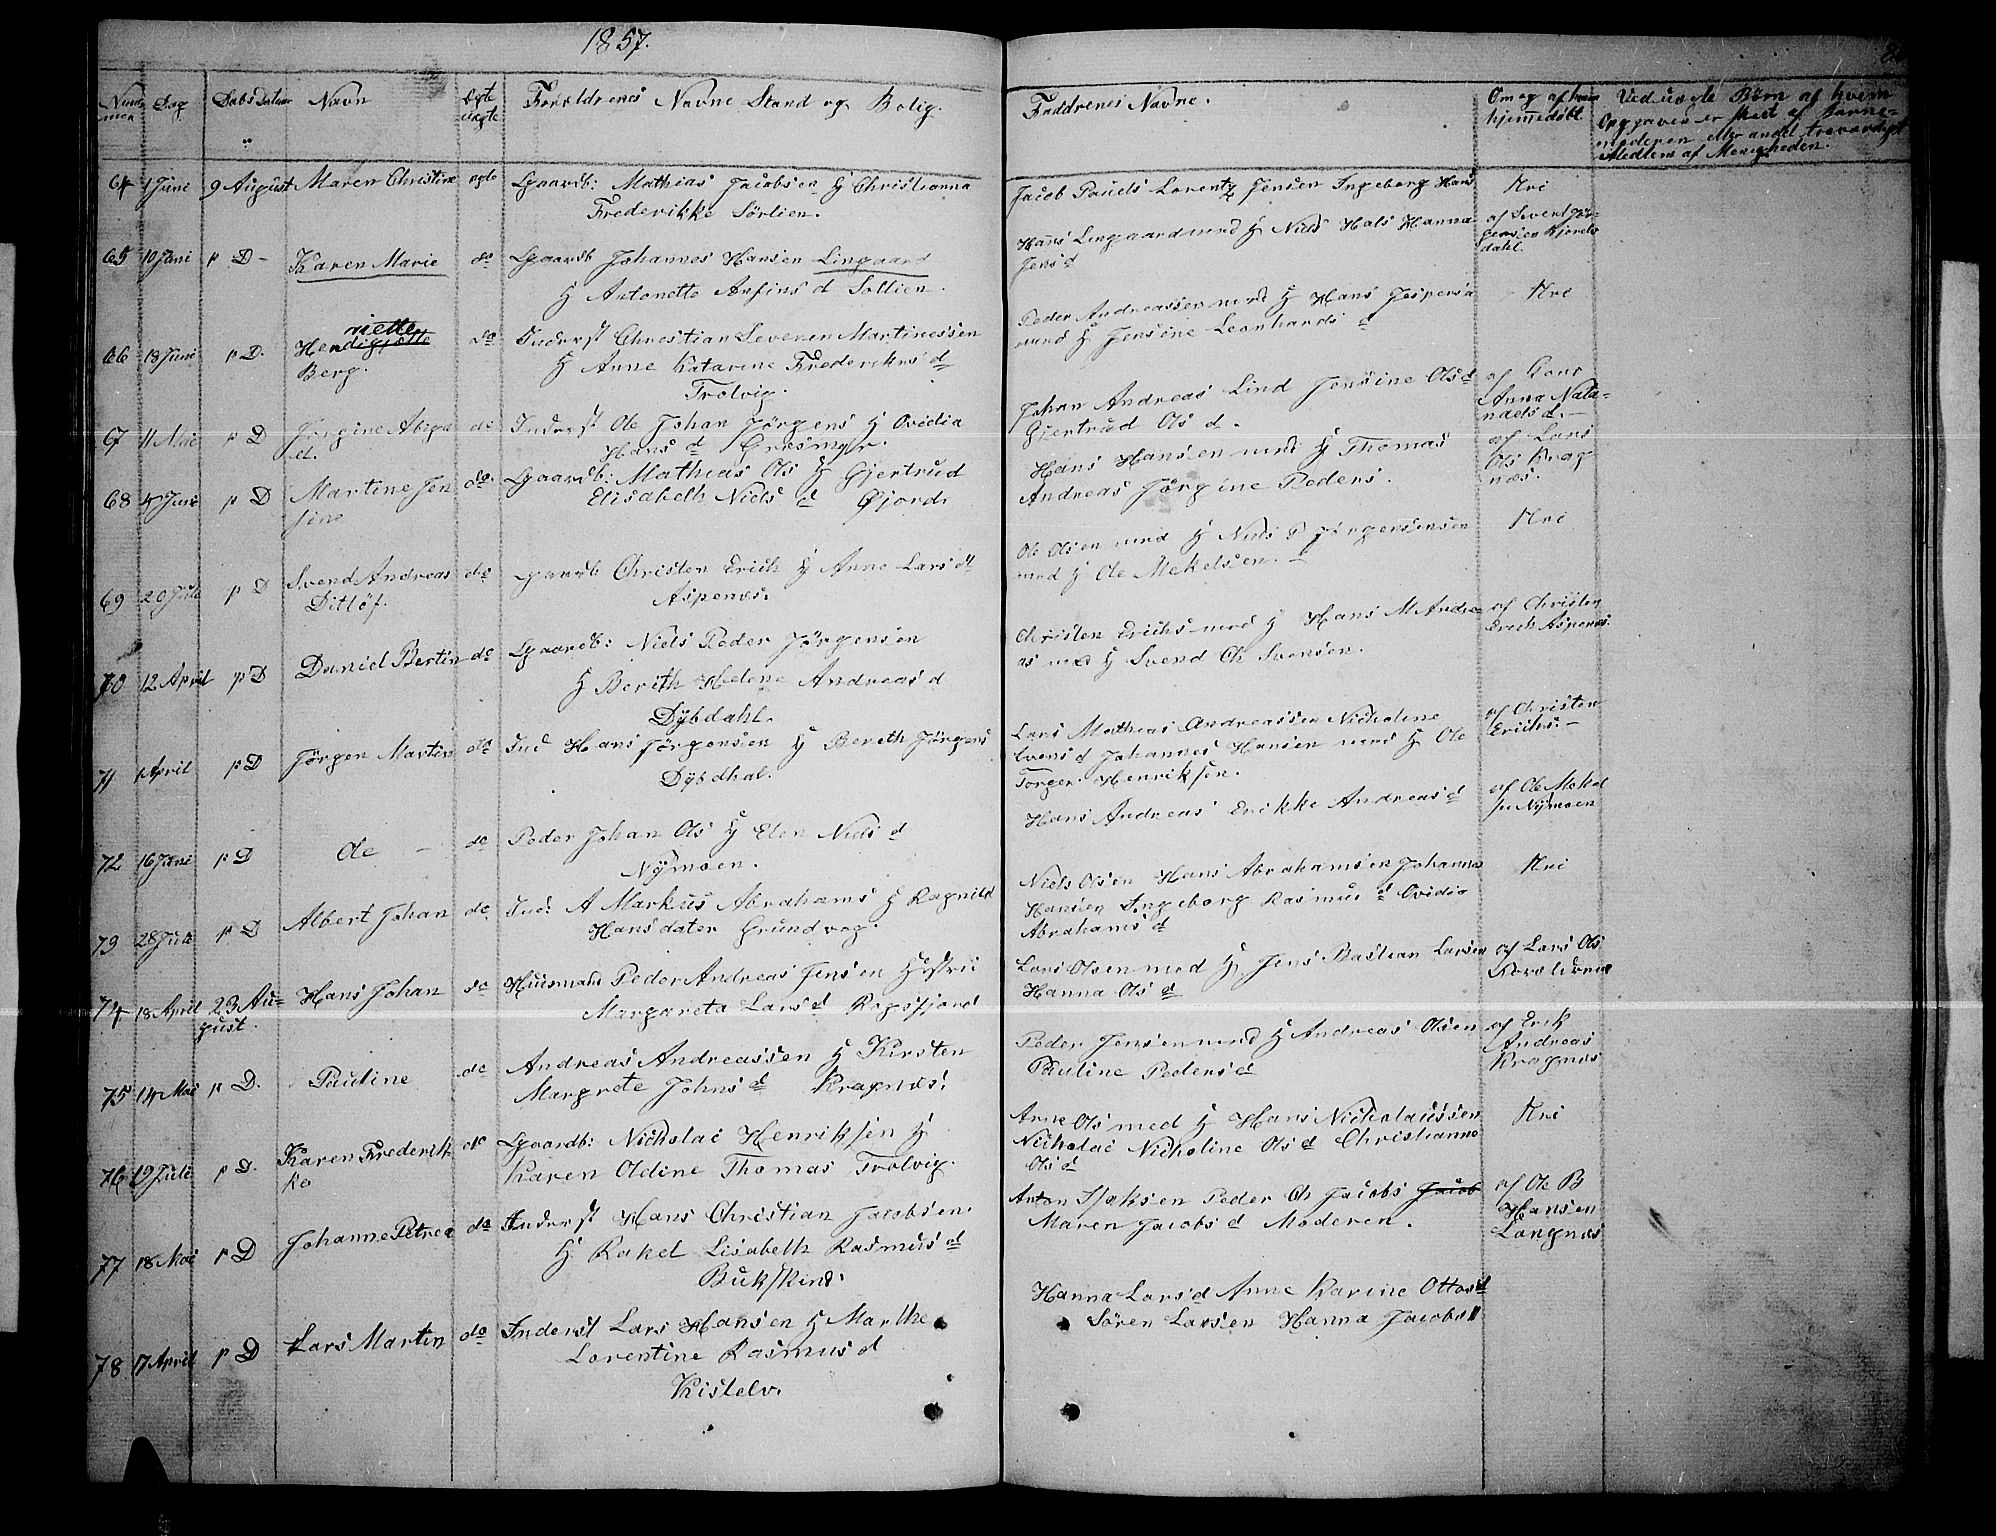 1857.
Num- Dag Daabs Datum Navn Ægte Foreldrenes Navne Stand og Bolig.
mer uægte
Faddrenes Navne. Om og af hvem Ved uægte Børn af hvem
hjemmedøbt. Opgaven er skeet af Barne-
moderen eller andet troværdigt
Medlem af Menigheden.
64 1 Juni 9 August Maren Christine ægte Lgaardb: Mathias Jacobsen H Christianna
Frederikke Sörlien.
Jacob Pauels Lorentz Jensen Ingeborg Hans Nei
65 10 Juni p D- Karen Marie do Lgaardb Johannes Hansen Lingaard
H Antonette Anfins d Sollien.
Hans Lingaard med H Niels Hals Hanna
Jens d
af Sevent Jör-
gensen Fjords
dahl.
66 18 Juni p D. Hendigjette riette do Inderst Christian Severen Martinessen
Berg. H Anne Katarine Frederikus d
Trolvig.
Peder Andreassen med H Hans Jespersa
med H Jensine Leonhards d
Nei
67 11 Mai p D Jörgine Abiga do Inderst Ole Johan Jörgens H Ovidia
el. Hans d Græsmyr.
Johan Andreas Lind Jensine Ols d
Gjertrud Ols d.
af Kone
Anna Nata-
naels d.-
68 4 Juni p D Martine Jen do. Lgaardb: Mathias Ols H Gjertrud
sine Elisabeth Niels d Gjord
Hans Hansen med H Thomas
Andreas Jörgine Peders.
af Lars
Ols Krag
næs.
69 20 Juli p D Svend Andreas do Lgaardb Christen Erich H Anne Lars d
Ditlöf. Aspenæs.
Ole Olsen med H Niels P Jörgensensen
med H Ole Mekelsen.-
Nei
70 12 April p D Daniel Bertin do Lgaardb: Niels Peder Jörgensen
H Berith Helene Andreas d
Dÿbdahl.
Christen Erichs med H Hans M Andre
as med H Svend Ch Svensen.
af Christen
Erich Aspenæs
71 1 April p D Jörgen Martin do Ind Hans Jörgensen H Bereth Jörgens
Dÿbdhal.
Lars Mathias Andreassen Nicholine
Evens d Johannes Hansen med H Ole
Torger Henriksen.
af Christen
Erichs.-
72 16 Juni p D do - do Peder Johan Ols H Elen Niels d
Nÿmoen.
Hans Andreas Erikke Andreas d
af Ole Mekel
sen Nÿmoen
73 28 Juli p D Albert Johan do Ind: A Markus Abrahams H Ragnild
Hans dater Grundvag.
Niels Olsen Hans Abrahamsen Johanna
Hansen Ingeborg Rasmus d Ovidia
Abrahams d
Nei
74 18 April 23 Au- Hans Johan do Huusmand Peder Andreas Jensen Hustrü
gust. Margareta Lars d Rogsfjord
Lars Olsen med H Jens Bastian Larsen
Hanna Ols d
af Lars Ols
75 14 Mai p D. Pauline do Andreas Andreassen H Kirsten
Margrete Johns d Kragnæs.
Peder Jensen med H Andreas Olsen
Pauline Peders d
af Erik
Andreas
Kragnæs
76 19 Juli p D. Karen Frederik do Lgaardb: Nicholai Henriksen H
ke Karen Oldine Thomas Trolvig.
Arne Ols med H Hans Nicholaussen
Nicholai Nicholine Ols d Christianna
Ols d
Nei
77 18 Mai p D Johanne Petrea do Inderst Hans Christian Jacobsen
H Rakel Lisabeth Rasmus d
Bukskind.
Anton Isaksen Peder Ch Jacobs Jacob
Maren Jacobs d Moderen.
af Ole B
Hansen
Langnæs
78 17 April p D Lars Martin do Inderst Lars Hansen H Marthe
Lorentine Rasmus d
Kistelv.
Hanna Lars d Anne Karine Ottos d
Sören Larsen Hanna Jacobs d